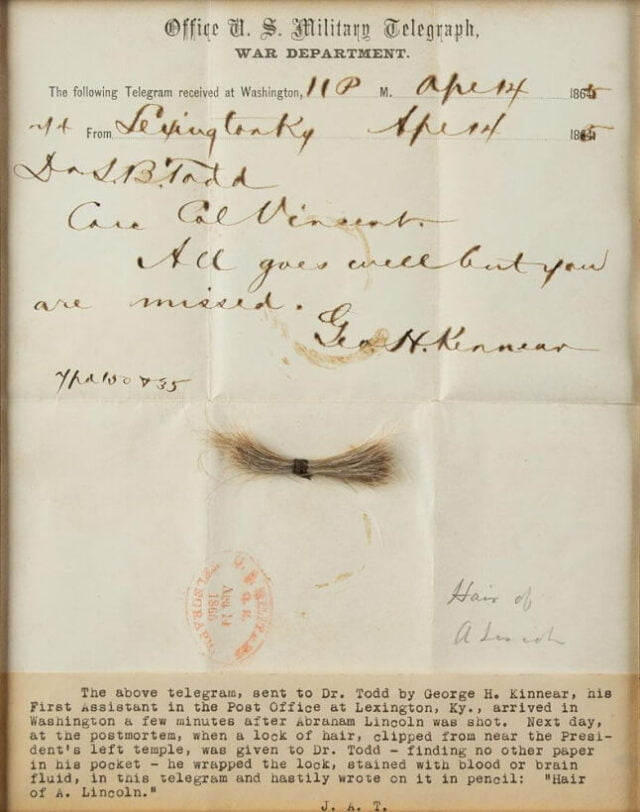 Office U. S. Military Telegraph,
WAR DEPARTMENT.
The following Telegram received at Washington, 11 P M. Apl 14 1865
From Lexington Ky Apl 14 1865
Dr L.B. Todd
Care Col Vincent.
All goes well but you
are missed.
Geo. H. Kinnear
Hair of
A Lincoln
The above telegram, sent to Dr. Todd by George H. Kinnear, his
First Assistant in the Post Office at Lexington, Ky., arrived in
Washington a few minutes after Abraham Lincoln was shot. Next day,
at the postmortem, when a lock of hair, clipped from near the Presi-
dent's left temple, was given to Dr. Todd - finding no other paper
in his pocket - he wrapped the lock, stained with blood or brain
fluid, in this telegram and hastily wrote on it in pencil: "Hair
of A. Lincoln."
J. A. T.